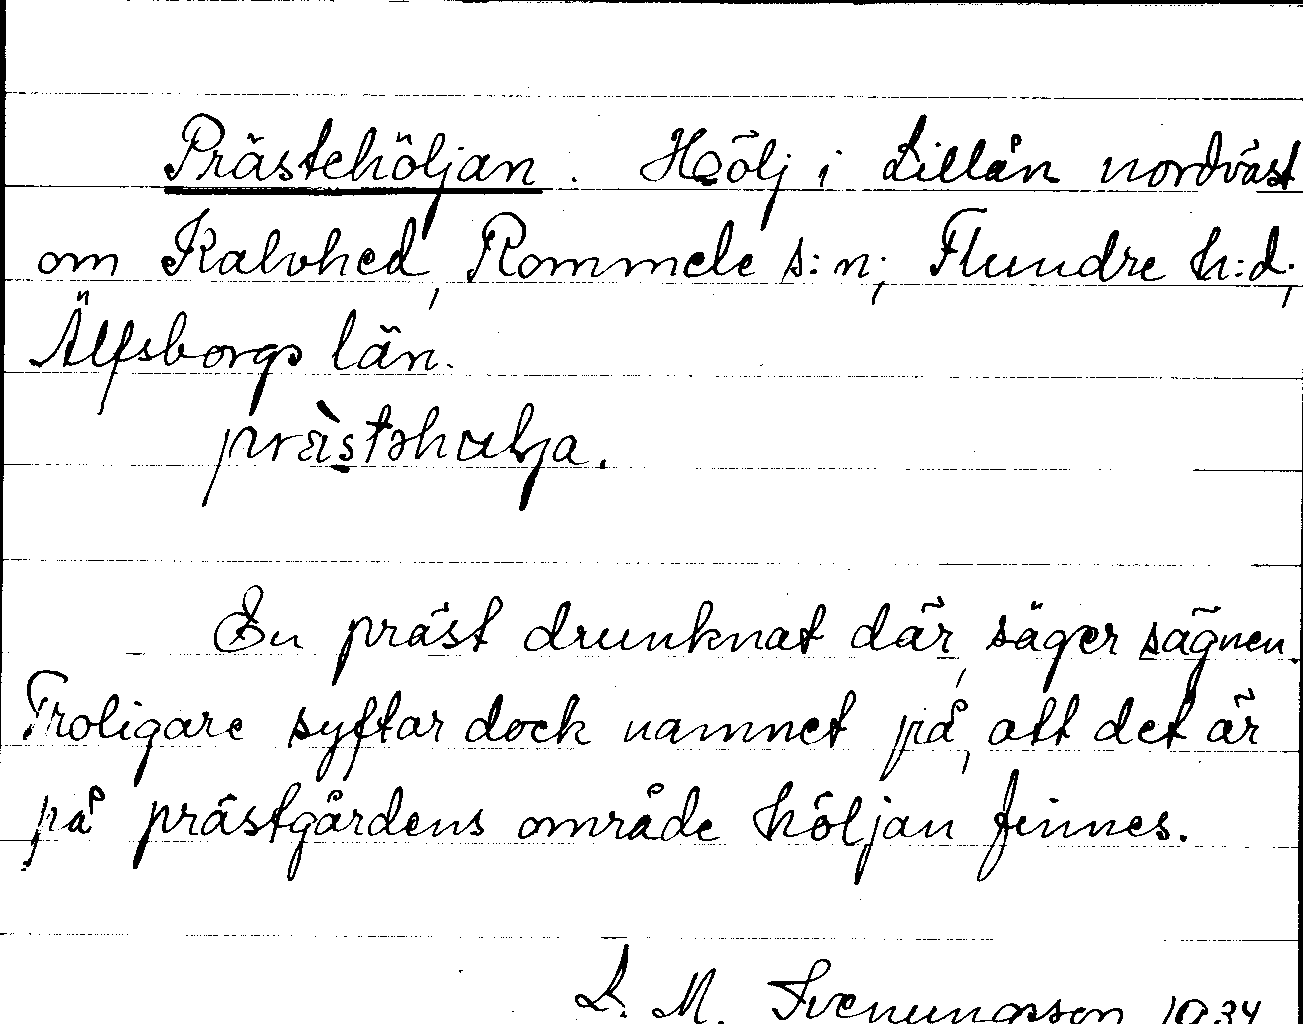 Prästehöljan. Hölj i Lillån nordväst
om Kalvhed, Rommele s:n; Flundre h:d;
Älfsborgs län.
prästəhulja.
En präst drunknat där, säger sägnen.
Troligare syftar dock namnet på, att det är
på prästgårdens område höljan finnes.
L. M. Svenungsson 1934